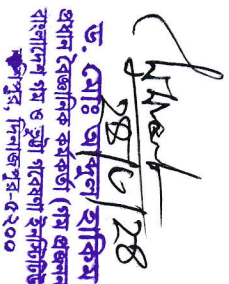 ড. মোঃ আব্দুল হাকিম
প্রধান বৈজ্ঞানিক কর্মকর্তা (গম প্রজনন
বাংলাদেশ গম ও ভুট্টা গবেষণা ইনস্টিটিউ
নশিপুর, দিনাজপুর-৫২০০